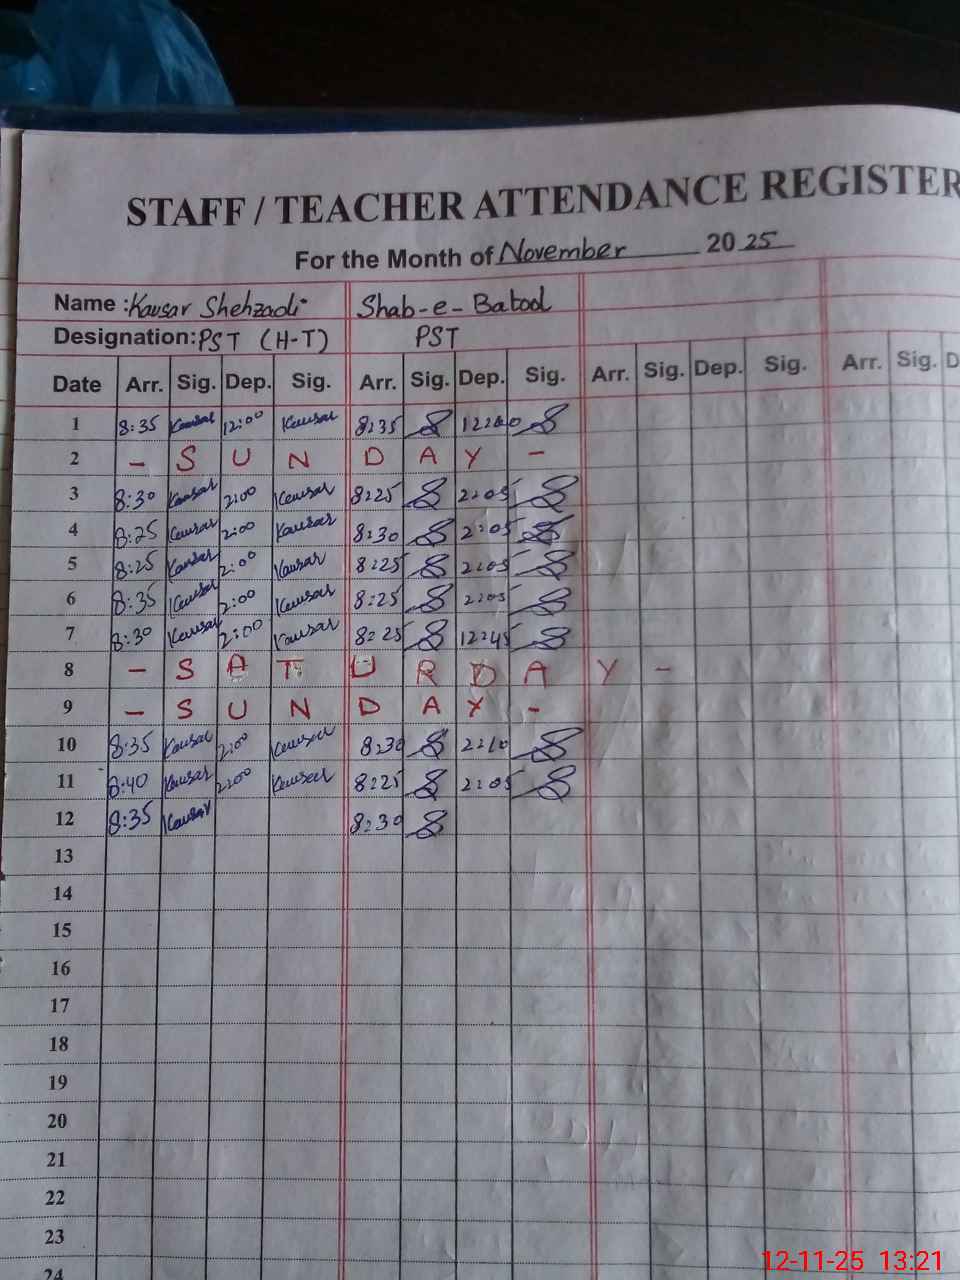 STAFF / TEACHER ATTENDANCE REGISTER
For the Month of November 2025
Name : Kausar Shehzadi Shab-e-Batool
Designation: PST (H-T) PST
Date Arr. Sig. Dep. Sig. Arr. Sig. Dep. Sig. Arr. Sig. Dep. Sig. Arr. Sig. D
1 8:35 Kausar 12:00 Kausar 8:35
2 - S U N D A Y -
3 8:30 Kausar 2:00 Kausar 8:25 2:05
4 8:25 Kausar 2:00 Kausar 8:30 2:05
5 8:25 Kausar 2:00 Kausar 8:25 2:05
6 8:35 Kausar 2:00 Kausar 8:25 2:05
7 8:30 Kausar 2:00 Kausar 8:25 12:45
8 - S A T U R D A Y -
9 - S U N D A Y -
10 8:35 Kausar 2:00 Kausar 8:30 2:10
11 8:40 Kausar 2:00 Kausar 8:25 2:05
12 8:35 Kausar 8:30
13
14
15
16
17
18
19
20
21
22
23
24
12-11-25 13:21